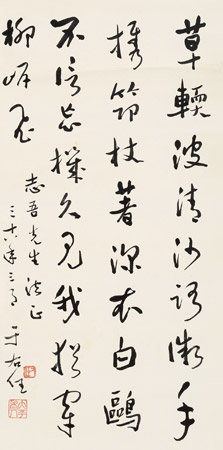 草輭波清沙路微手
携筇杖著深衣白鷗
不信忘機久見我猶穿
柳岸飛
志吾先生法正
三十八年三月
于右任